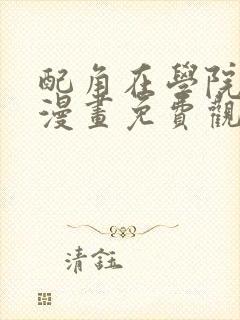 配角在學院
漫畫免費觀
清鈺